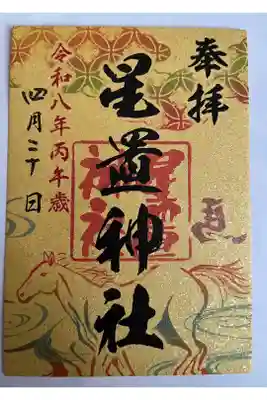 奉拝
星置神社
令和八年丙午歳
四月二十日